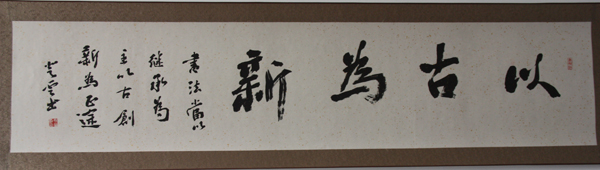 以古為新
書法當以
継承為
主以古創
新為正途